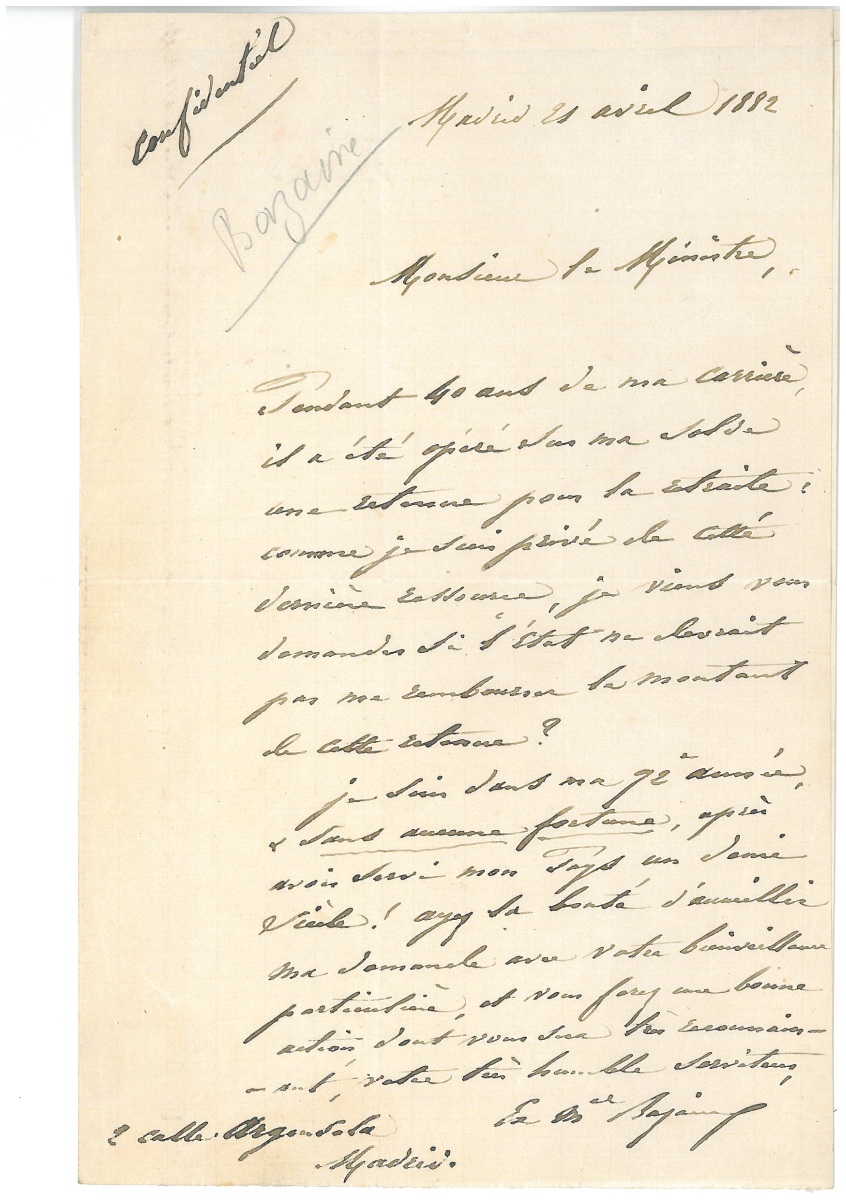 Confidentiel
Bazaine
Madrid 21 avril 1882
Monsieur le Ministre,
Pendant 40 ans de ma carrière,
il a été opéré sur ma solde
une retenue pour la retraite :
comme je suis privé de cette
dernière ressource, je viens vous
demander si l'État ne devrait
pas me rembourser le montant
de cette retenue ?
je suis dans ma 72e année,
& sans aucune fortune, après
avoir servi mon Pays un demi
Siècle ! ayez la bonté d'accueillir
ma demande avec votre bienveillance
particulière, et vous ferez une bonne
action, dont vous sera très reconnais-
-sant, votre très humble serviteur,
Ex Mal Bazaine
2 calle Argensola
Madrid.